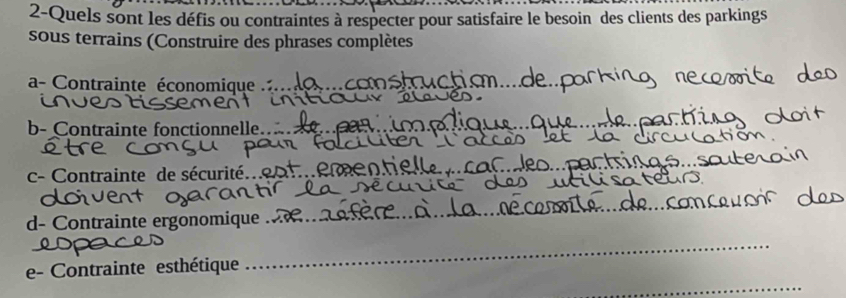 2-Quels sont les défis ou contraintes à respecter pour satisfaire le besoin des clients des parkings
sous terrains (Construire des phrases complètes
a- Contrainte économique la construction de parking necessite des
investissement initiaux eleves.
b- Contrainte fonctionnelle implique que le parking doit
être consu pour falciliter l'accès et la circulation.
c- Contrainte de sécurité est essentielle, car les parkings souterain
doivent garantir la sécurité des utilisateurs.
d- Contrainte ergonomique se réfère à la nécessité de concevoir des
espaces
e- Contrainte esthétique